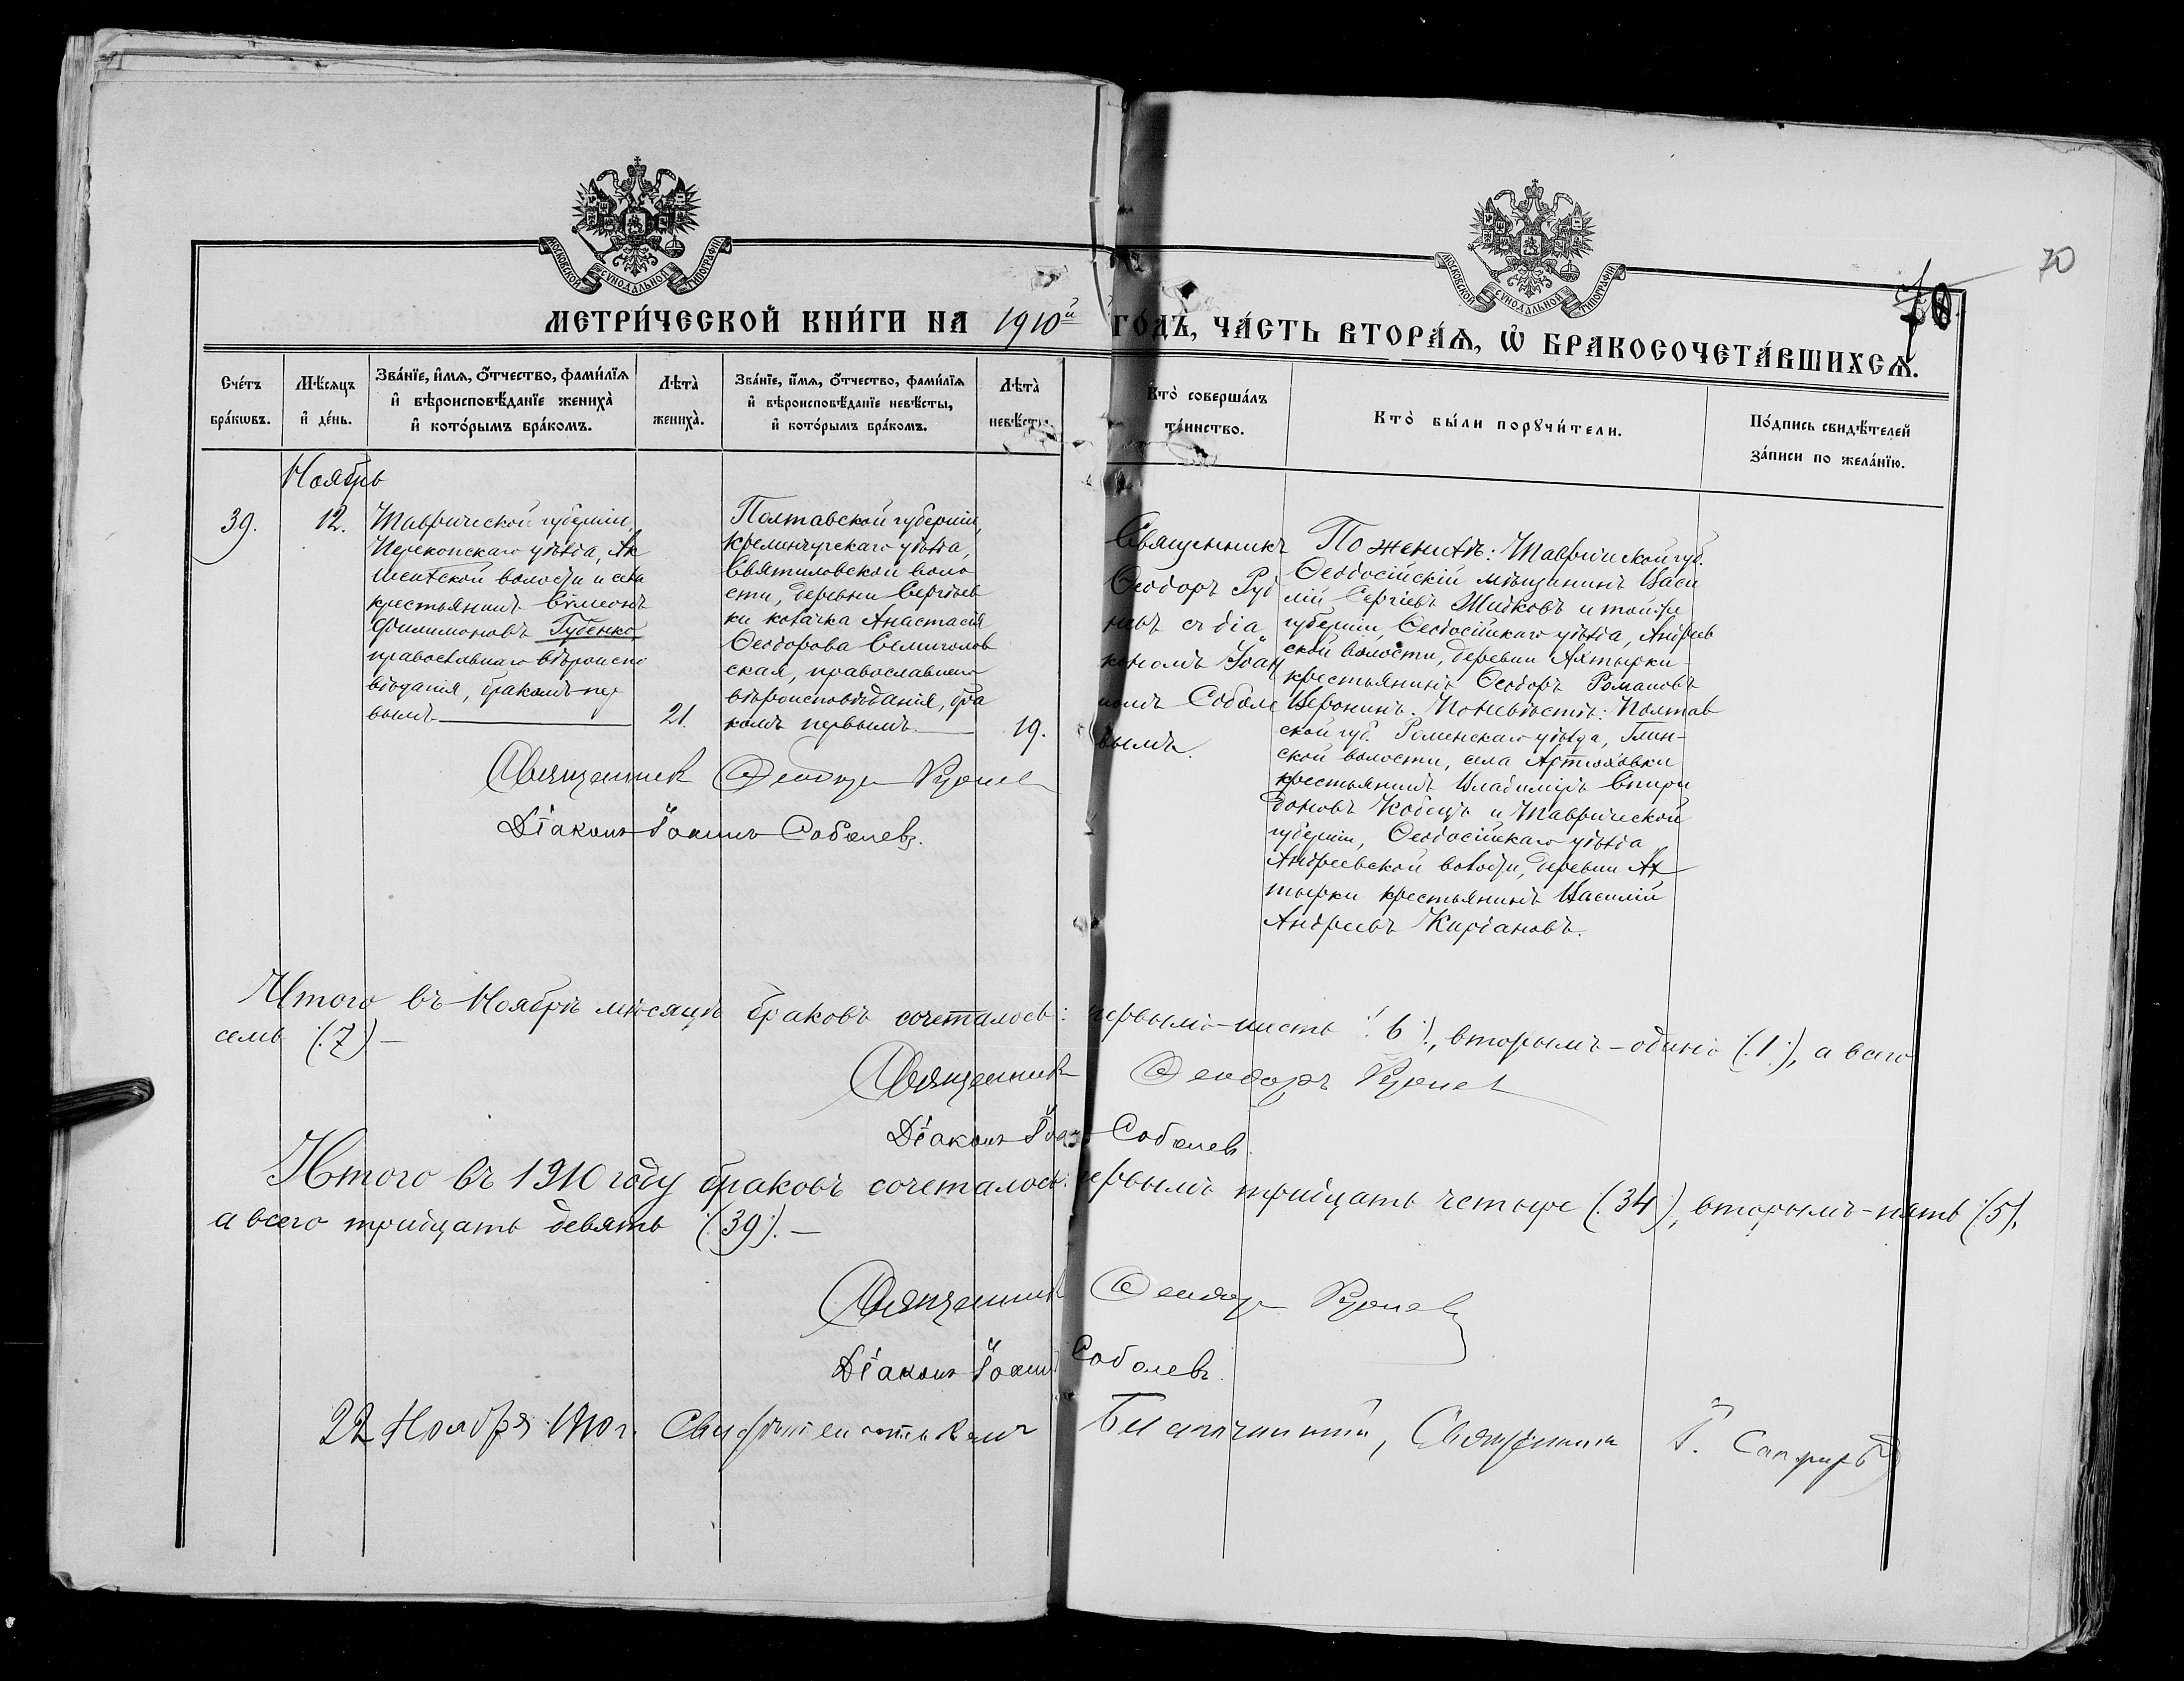 МОСКОВСКОЙ СѴНОДАЛЬНОЙ ТИПОГРАФІИ
МОСКОВСКОЙ СѴНОДАЛЬНОЙ ТИПОГРАФІИ
70
70.
МЕТРИ́ЧЕСКОЙ КНИ́ГИ НА 1910й ГО́ДЪ, ЧА́СТЬ ВТОРА́Ѧ, Ѡ҆ БРАКОСОЧЕТА́ВШИХСѦ.
Сче́тъ
бра́кѡвъ.
Мѣ́сѧцъ
и҆ де́нь.
Зва́нїе, и҆́мѧ, ѻ҆́тчество, фами́лїѧ
и҆ вѣроисповѣ́данїе жениха̀
и҆ кото́рымъ бра́комъ.
Лѣта̀
жениха̀.
Зва́нїе, и҆́мѧ, ѻ҆́тчество, фами́лїѧ
и҆ вѣроисповѣ́данїе невѣ́сты,
и҆ кото́рымъ бра́комъ.
Лѣта̀
невѣ́сты.
Кто̀ соверша́лъ
та́инство.
Кто̀ бы́ли порꙋчи́тели.
По́дпись свидѣ́телей
за́писи по жела́нїю.
Ноябрь
39.
12.
Таврической губерніи,
Перекопскаго уѣзда, Ак
шеитской волости и села
крестьянинъ Сѵмеонъ
Филимоновъ Губенко,
православнаго вѣроиспо
вѣданія, бракомъ пер
вымъ.
21.
Полтавской губерніи,
Кременчугскаго уѣзда,
Святиловской воло
сти, деревни Сергѣев
ки козачка Анастасія
Ѳеодорова Семиголов
ская, православнаго
вѣроисповѣданія, бра
комъ первымъ.
19.
Священникъ
Ѳеодоръ Руд
невъ съ діа
кономъ Іоан
номъ Соболе
вымъ.
По женихѣ: Таврической губ.
Ѳеодосійскій мѣщанинъ Васи
лій Сергіевъ Жидковъ и той же
губерніи, Ѳеодосійскаго уѣзда, Андреев
ской волости, деревни Ахтырки
крестьянинъ Ѳеодоръ Романовъ
Веронинъ. По невѣстѣ: Полтав
ской губ. Роменскаго уѣзда, Глин-
ской волости, села Артюховки
крестьянинъ Владиміръ Спири
доновъ Кобецъ и Таврической
губерніи, Ѳеодосійскаго уѣзда
Андреевской волости, деревни Ах
тырки крестьянинъ Василій
Андреевъ Кирьановъ.
Священникъ Ѳеодоръ Руднев
Діаконъ Іоаннъ Соболевъ.
Итого въ Ноябрѣ мѣсяцѣ браковъ сочеталось: первымъ-шесть (:6:), вторымъ-одинъ (:1:), а всего
семь (:7:) —
Священникъ Ѳеодоръ Руднев
Діаконъ Іоаннъ Соболевъ
Итого въ 1910 году браковъ сочеталось: первымъ тридцать четыре (:34:), вторымъ-пять (:5:),
а всего тридцать девять (:39:). —
Священникъ Ѳеодоръ Рудневъ
Діаконъ Іоаннъ Соболевъ.
22 Ноября 1910 г. Благочинный, Священникъ І.